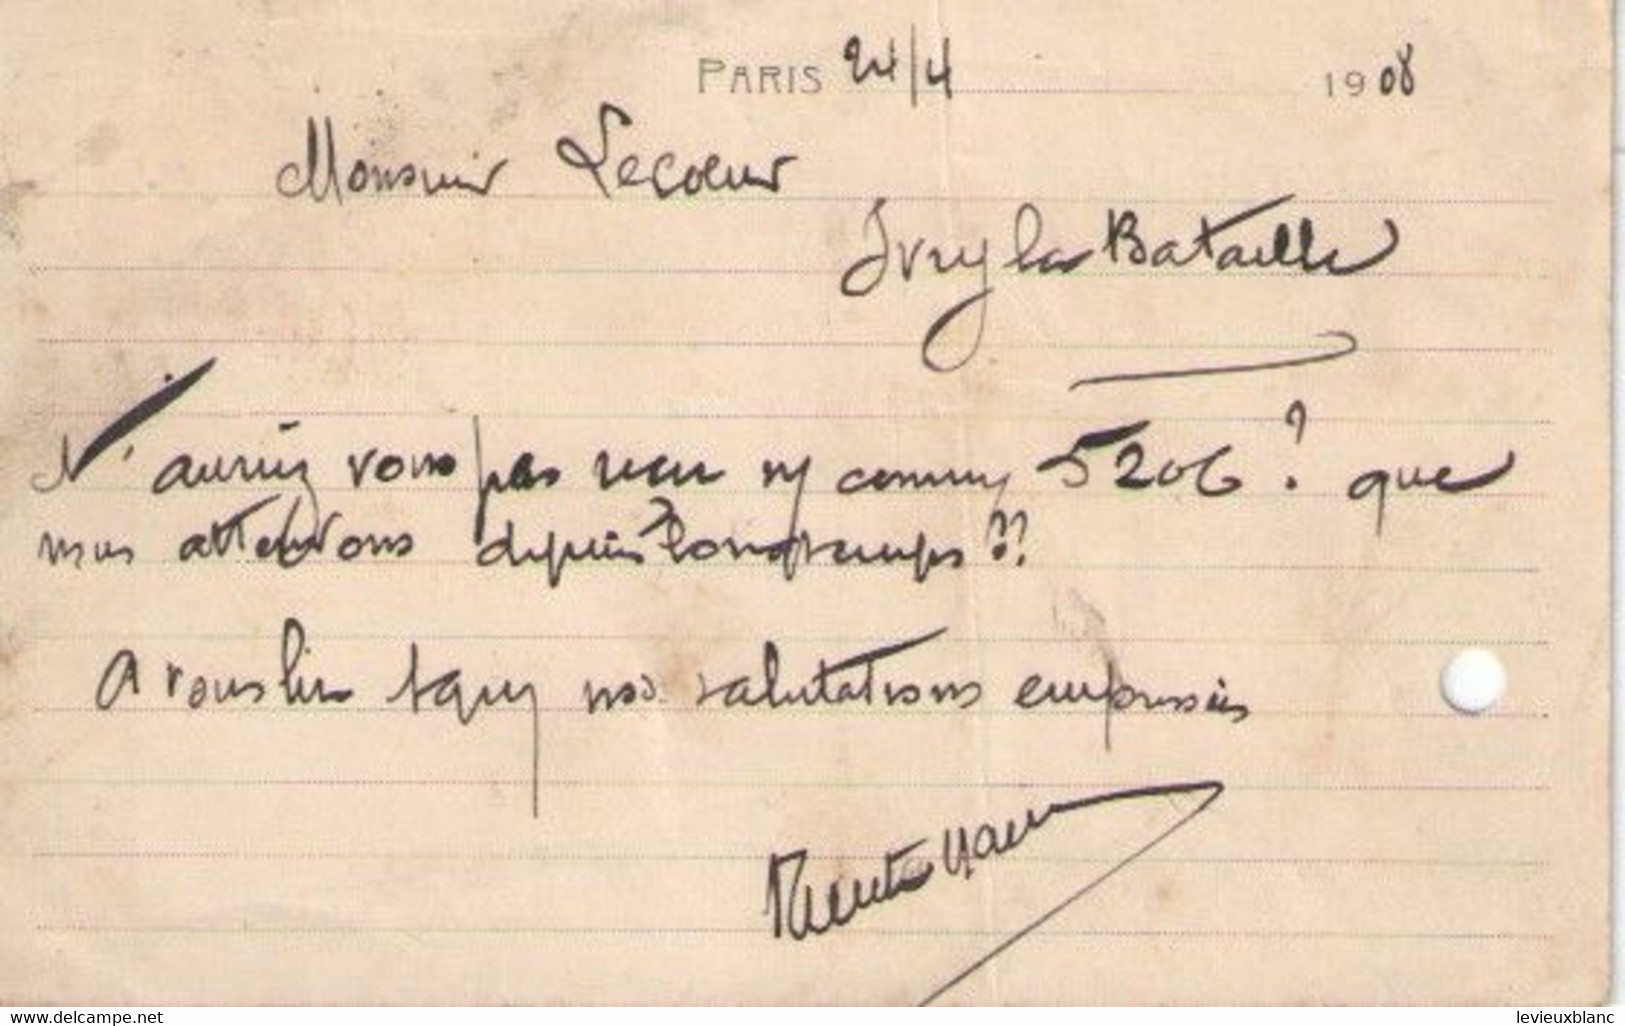 PARIS 24/4 1908
Monsieur Lecoeur
Ivry la Bataille
N'auriez vous pas recu ny commy 5206? que
nous attendons depuis longtemps??
A vous lire nos salutations empressées
levieuxblanc
www.delcampe.net